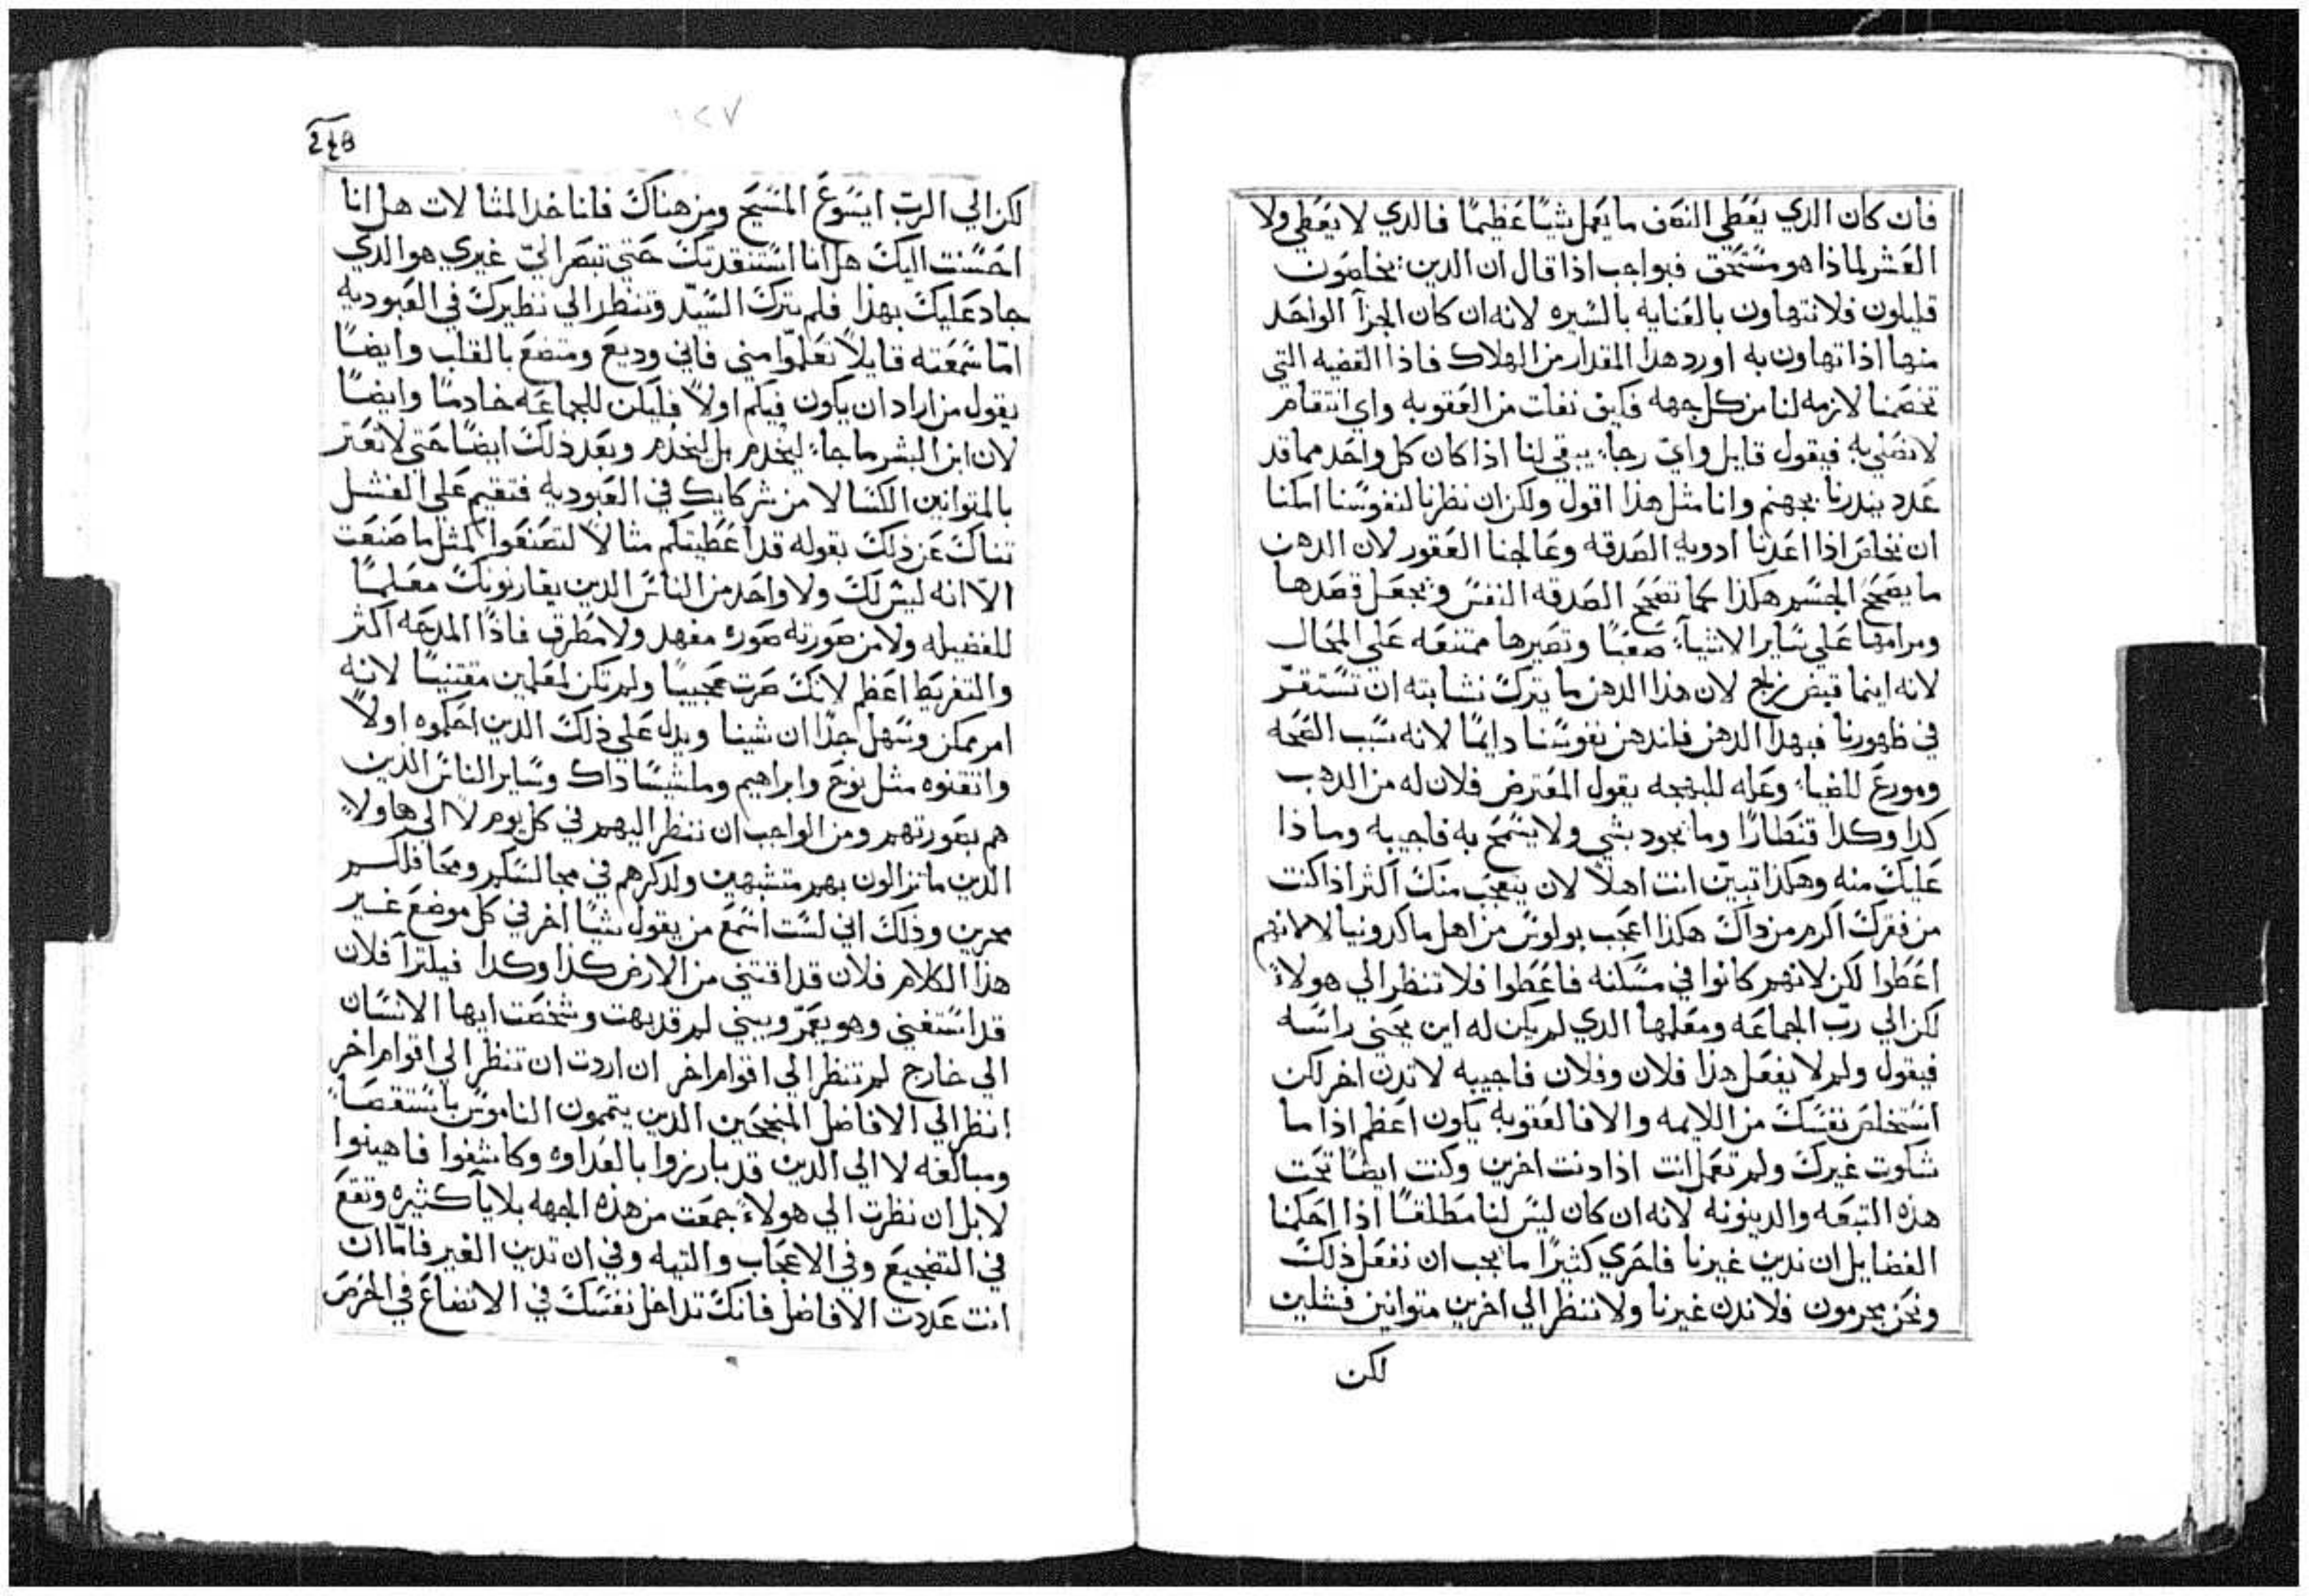 فان كان الدي يعطي النصف ما يعمل شياً عظيماً فالدي لا يعطي ولا
العشر لماذا هو مستحق فبواجب اذا قال ان الدين يخلصون
قليلون فلا نتهاون بالعنايه بالسيره لانه ان كان الجزآ الواحد
منها اذا تهاون به اورد هدا المقدار من الهلاك فاذا القضيه التي
تخصمنا لازمه لنا من كل جهه فكيف نفلت من العقوبه واي انتقام
لا نصلي به فيقول قايل وايّ رجاءٍ يبقي لنا اذا كان كل واحد مما قد
عدد يندرنا بجهنم وانا مثل هذا اقول ولكن ان نظرنا لنفوسنا امكنا
ان نخلص اذا اعدنا ادويه الصدقه وعالجنا العقور لان الدهن
ما يصحح الجسم هكذا كما تصحح الصدقه النفس ويجعل قصدها
ومرامها علي ساير الاشيآء صعباً وتصيرها ممتنعه علي المحال
لانه اينما قبض زلج لان هدا الدهن ما يترك نشابته ان تستقرّ
في ظهورنا فبهدا الدهن فلندهن نفوسنا دايماً لانه سبب الصحه
ومورع للضياء وعله للبهجه يقول المعترض فلان له من الدهب
كدا وكدا قنطارًا وما يجود بشي ولا يسمح به فاجيبه وماذا
عليك منه وهكذا تبيّن انت اهلاً لان يتعجب منك اكثر اذا كنت
من فقرك اكرم من داك هكذا اعجب بولوس من اهل ماكدونيا لا لانهم
اعطوا لكن لانهم كانوا في مسكنه فاعطوا فلا تنظر الي هولاء
لكن الي ربّ الجماعه ومعلمها الدي لم يكن له اين يحني راسه
فيقول ولم لا يفعل هذا فلان وفلان فاجيبه لا تدن اخر لكن
استخلص نفسك من اللايمه والا فالعقوبه يكون اعظم اذا ما
شكوت غيرك ولم تعمل انت اذا دنت اخرين وكنت ايضًا تحت
هذه التبعه والدينونه لانه ان كان ليس لنا مطلقًا اذا احكمنا
الفضايل ان ندين غيرنا فاحري كثيرًا ما يجب ان نفعل ذلك
ونحن مجرمون فلا ندن غيرنا ولا ننظر الي اخرين متوانين فشلين
لكن
١٢٧
لكن الي الربّ ايسوع المسيح ومن هناك فلناخد المثالات هل انا
احسنت اليك هل انا استنقدتك حتي تبصر اليّ غيري هو الدي
جاد عليك بهذا فلم تترك السيّد وتنظر الي نظيرك في العبوديه
امّا سمعته قايلاً تعلّموا مني فاني وديع ومتضع بالقلب وايضًا
يقول من اراد ان يكون فيكم اولاً فليكن للجماعه خادمًا وايضًا
لان ابن البشر ما جاءَ ليخدم بل ليخدم وبعد ذلك ايضًا حتي لا تعتر
بالمتوانين الكسالا من شركايك في العبوديه فتقيم علي الفشل
تناك عن ذلك بقوله قد اعطيتكم مثالاً لتصنعوا كمثل ما صنعت
الاّ انه ليس لك ولا واحد من الناس الدين يقارنونك معلماً
للفضيله ولا من صورته صوره مفهد ولا مطرق فاذًا المدحه اكثر
والتفريط اعظم لانك صرت عجيبًا ولم تكن لمعلمين مقتنيًا لانه
امر ممكن وسهل جدًا ان شينا ويدل علي ذلك الدين احكموه اولاً
واتقنوه مثل نوح وابراهيم وملشيساداك وساير الناس الذين
هم بصورتهم ومن الواجب ان ننظر اليهم في كل يوم لا الي هاولاءِ
الدين ما تزالون بهم متشبهين ولدكرهم في مجالسكم ومحافلكم
محرين وذلك اني لست اسمع من يقول شيًا اخر في كل موضع غير
هذا الكلام فلان قد اقتني من الارض كذا وكدا فيلترآ فلان
قد استغني وهو يعمّر ويبني لم قد بهت وشخصت ايها الانسان
الي خارج لم تنظر الي اقوام اخر ان اردت ان تنظر الي اقوام اخر
انظر الي الافاضل المنجحين الدين يتممون الناموس باستقصاءٍ
ومبالغه لا الي الدين قد بارزوا بالعداوه وكاشفوا فاهينوا
لا بل ان نظرت الي هولاءِ جمعت من هذه الجهه بلايآ كثيره وتقع
في التضجيع وفي الاعجاب والتيه وفي ان تدين الغير فامّا ان
انت عددت الافاضل فانك تداخل نفسك في الاتضاع في الحرص